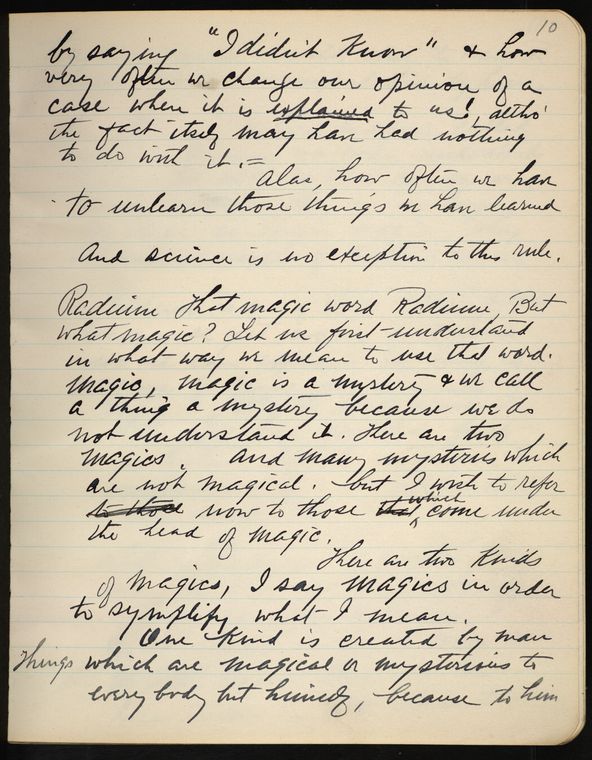 10
by saying "I didn't Know" & how
very often we change our opinion of a
case when it is explained to us!, altho'
the fact itself may have had nothing
to do with it. =
Alas, how often we have
to unlearn those things we have learned
And science is no exception to this rule.
Radium that magic word Radium, But
what magic? Let us first understand
in what way we mean to use that word.
Magic, magic is a mystery & we call
a thing a mystery because we do
not understand it. There are two
magics. and many mysteries which
are not magical. but I wish to refer
to those now to those that which come under
the head of magic.
There are two Kinds
of Magics, I say Magics in order
to symplify what I mean.
One Kind is created by man
Things which are magical or mysterious to
every body but himself, because to him